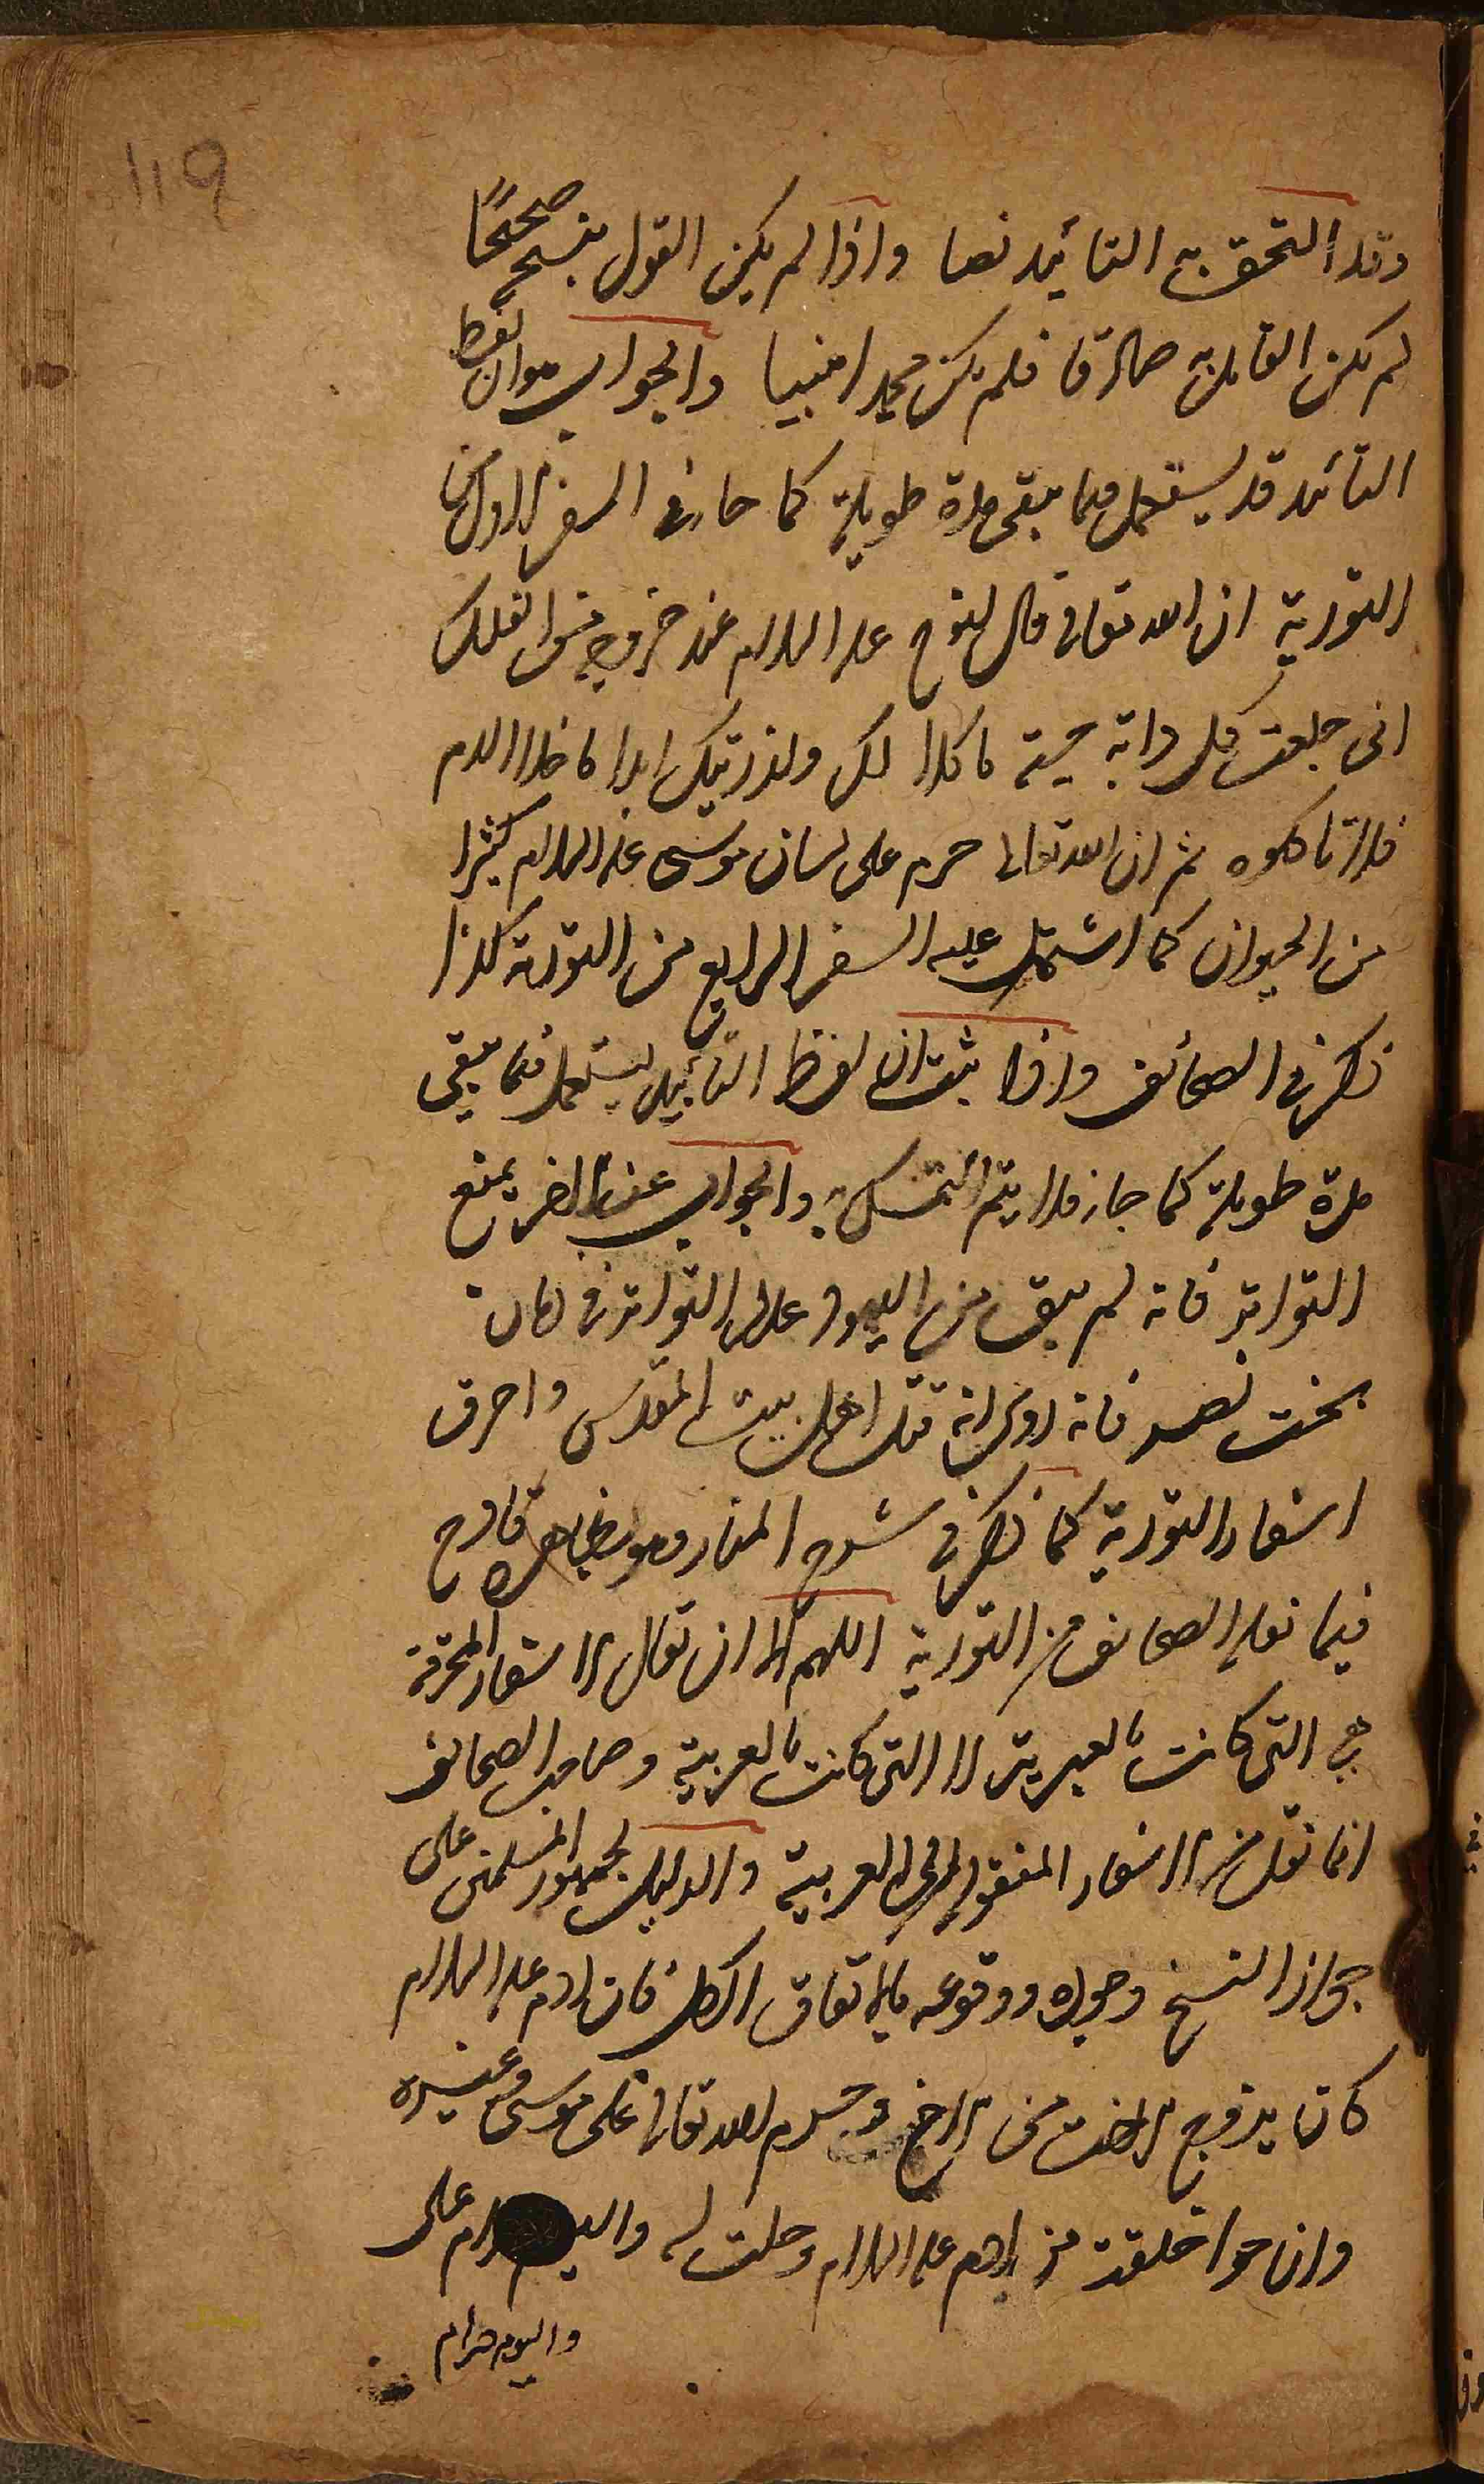 119
وقد التحق به التأبيد نصا واذا لم يكن القول بنسخ صحيحًا
لم يكن القائل به صادقا فلم يكن محمدا نبيا والجواب هو ان لفظ
التأبيد قد يستعمل فيما يبقى مدة طويلة كما جاز في السفر الاول من
التورية ان الله تعالى قال لنوح عليه السلام عند خروجه من الفلك
انى جعلت كل دابة حية مأكلا لك ولذريتك ابدا ما خلا الدم
فلا تاكلوه ثم ان الله تعالى حرم على لسان موسى عليه السلام كثيرا
من الحيوان كما اشتمل عليه السفر الرابع من التورية كذا
ذكر في الصحائف واذا ثبت ان لفظ التأبيد يستعمل فيما يبقى
مدة طويلة كما جاز فلا يتم التمسك به والجواب عند الاخر يمنع
التواتر فانه لم يبق من اليهود عدد التواتر في زمان
بخت نصر فانه روى انه قتل اهل بيت المقدس واحرق
اسفار التورية كما ذكر في شرح المنار وهو بظاهره قادح
فيما نقله الصحائف من التورية اللهم الا ان تقال الاسفار المحرقة
هي التى كانت بالعبرية لا التى كانت بالعربية وصاحب الصحائف
انما نقل من الاسفار المنقولة الى العربية والدليل لجمهور المسلمين على
جواز النسخ وجوده ووقوعه بالاتفاق الكل فان ادم عليه السلام
كان يزوج الاخت من الاخ وحرم الله تعالى على موسى وغيره
وان حوا خلقت من ادم عليه السلام وحلت له واليوم حرام على
واليوم حرام